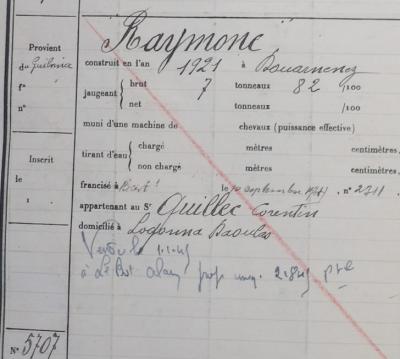 Raymone
Provient
du Guilvinec
f°
n°
construit en l'an 1921 à Douarnenez
jaugeant { brut 7 tonneaux 82 /100
net tonneaux /100
muni d'une machine de chevaux (puissance effective)
tirant d'eau { chargé mètres centimètres,
non chargé mètres centimètres,
Inscrit
le
francisé à Brest le septembre n° 2711
appartenant au Sr Quillec Corentin
domicilié à Logonna Daoulas
Vendu le 1.1.45
à Le Bot Alain prop 2.8.45
N° 5707